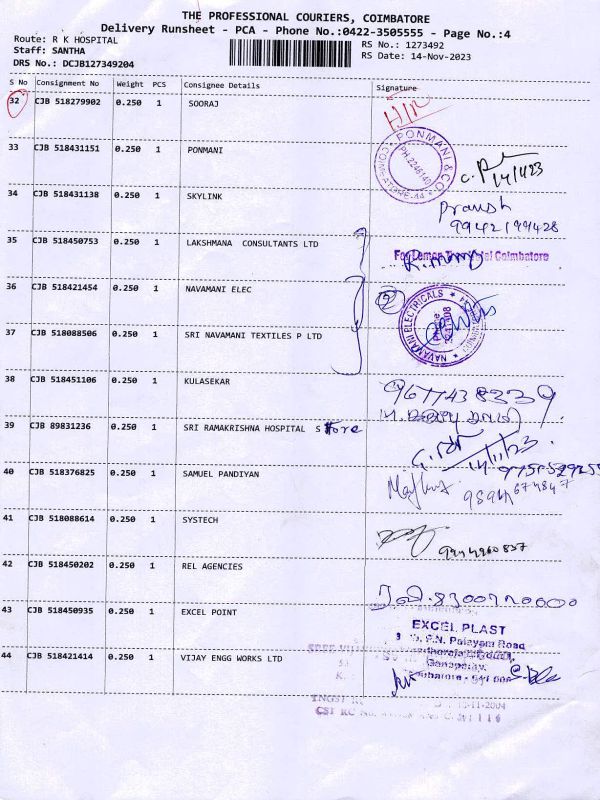 THE PROFESSIONAL COURIERS, COIMBATORE
Delivery Runsheet - PCA - Phone No.:0422-3505555 - Page No.:4
Route: R K HOSPITAL
Staff: SANTHA
DRS No.: DCJB127349204
RS No.: 1273492
RS Date: 14-Nov-2023
S No Consignment No Weight PCS Consignee Details Signature
32 CJB 518279902 0.250 1 SOORAJ
33 CJB 518431151 0.250 1 PONMANI
PONMANI & CO.
PH 2246140
14/11/23
34 CJB 518431138 0.250 1 SKYLINK
9942199428
35 CJB 518450753 0.250 1 LAKSHMANA CONSULTANTS LTD
Coimbatore
36 CJB 518421454 0.250 1 NAVAMANI ELEC
2
NAVAMANI ELECTRICALS
37 CJB 518088506 0.250 1 SRI NAVAMANI TEXTILES P LTD
38 CJB 518451106 0.250 1 KULASEKAR
9677438339
39 CJB 89831236 0.250 1 SRI RAMAKRISHNA HOSPITAL S Store
14/11/23
40 CJB 518376825 0.250 1 SAMUEL PANDIYAN
41 CJB 518088614 0.250 1 SYSTECH
42 CJB 518450202 0.250 1 REL AGENCIES
43 CJB 518450935 0.250 1 EXCEL POINT
EXCEL PLAST
P.N. Palayam Road
Ganapathy,
44 CJB 518421414 0.250 1 VIJAY ENGG WORKS LTD